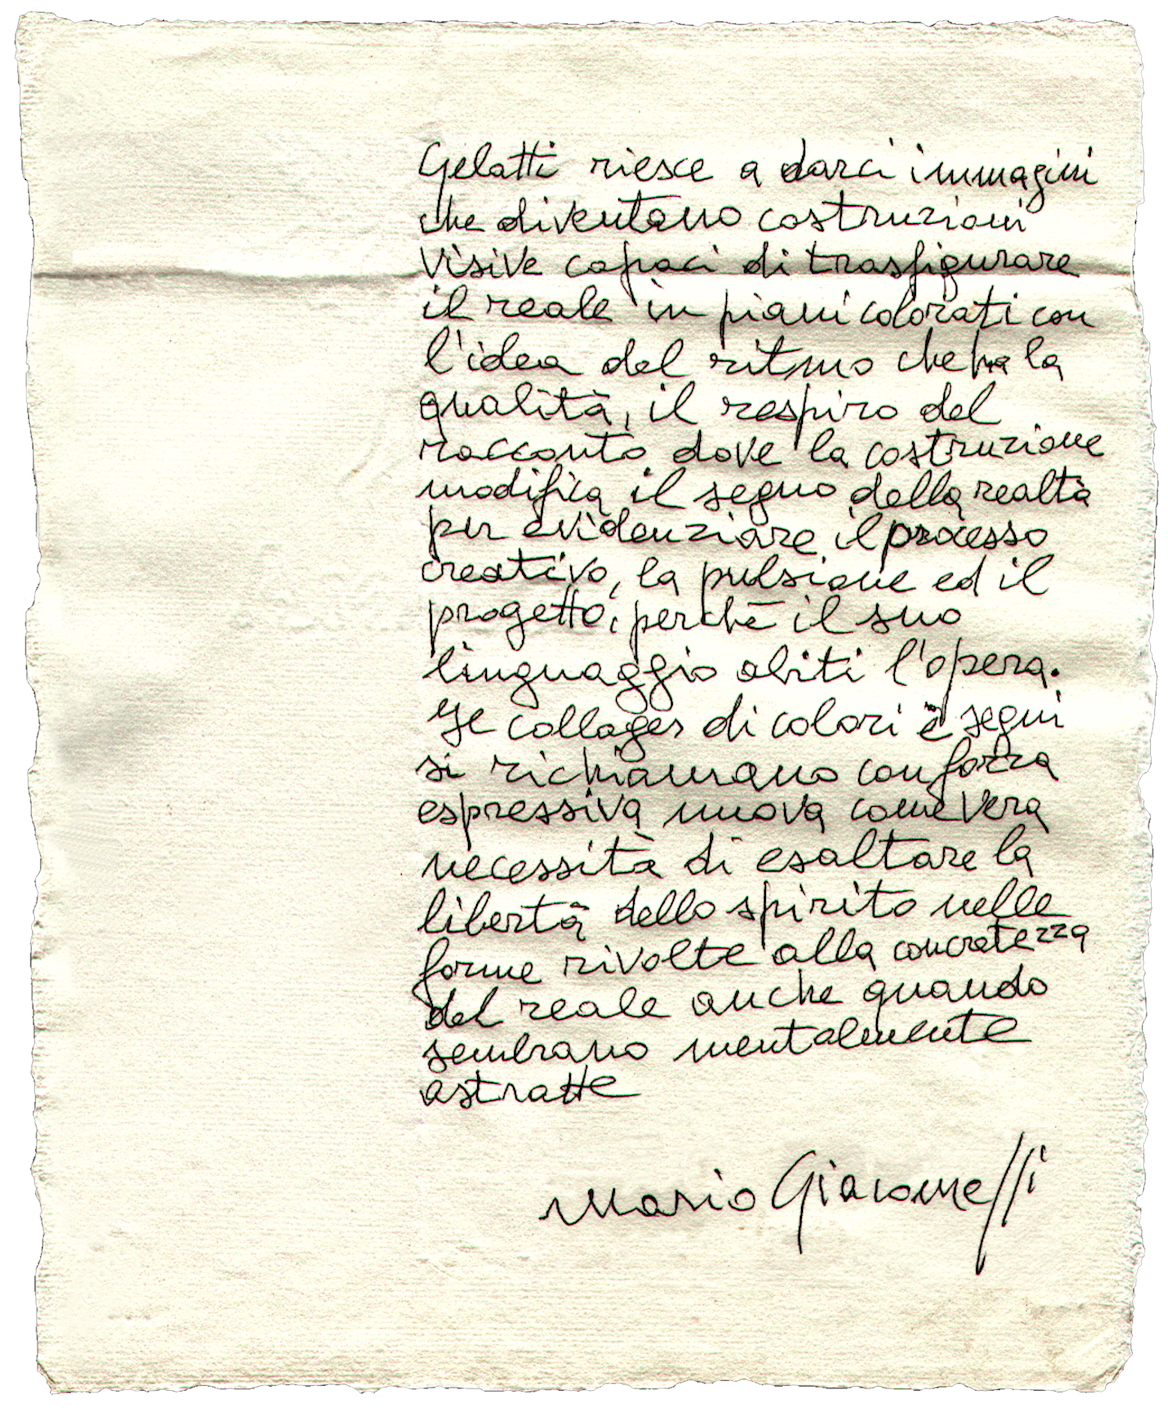 Gelatti riesce a darci immagini
che diventano costruzioni
visive capaci di trasfigurare
il reale in piani colorati con
l'idea del ritmo che ha la
qualità, il respiro del
racconto dove la costruzione
modifica il segno della realtà
per evidenziare il processo
creativo, la pulsione ed il
progetto, perchè il suo
linguaggio abiti l'opera.
Je collages di colori e segni
si richiamano con forza
espressiva nuova come vera
necessità di esaltare la
libertà dello spirito nelle
forme rivolte alla concretezza
del reale anche quando
sembrano mentalmente
astratte
Mario Giacomelli